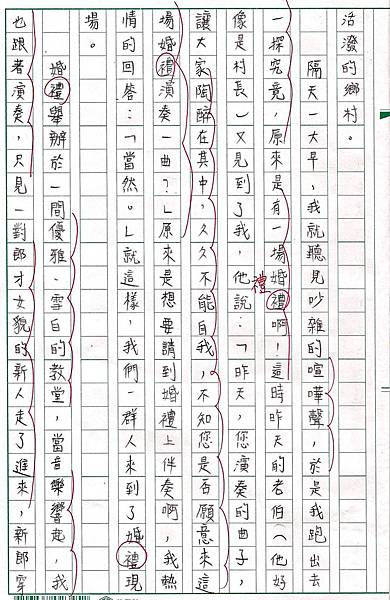 活潑的鄉村。
隔天一大早，我就聽見吵雜的喧嘩聲，於是我跑出去
一探究竟，原來是有一場婚禮啊！這時昨天的老伯（他好
禮
像是村長）又見到了我，他說：「昨天，您演奏的曲子，
讓大家陶醉在其中，久久不能自我，不知您是否願意來這
場婚禮演奏一曲？」原來是想要請到婚禮上伴奏啊，我熱
情的回答：「當然。」就這樣，我們一群人來到了婚禮現
場。
婚禮舉辦於一間優雅、雪白的教堂，當音樂響起，我
也跟者演奏，只見一對郎才女貌的新人走了進來，新郎穿